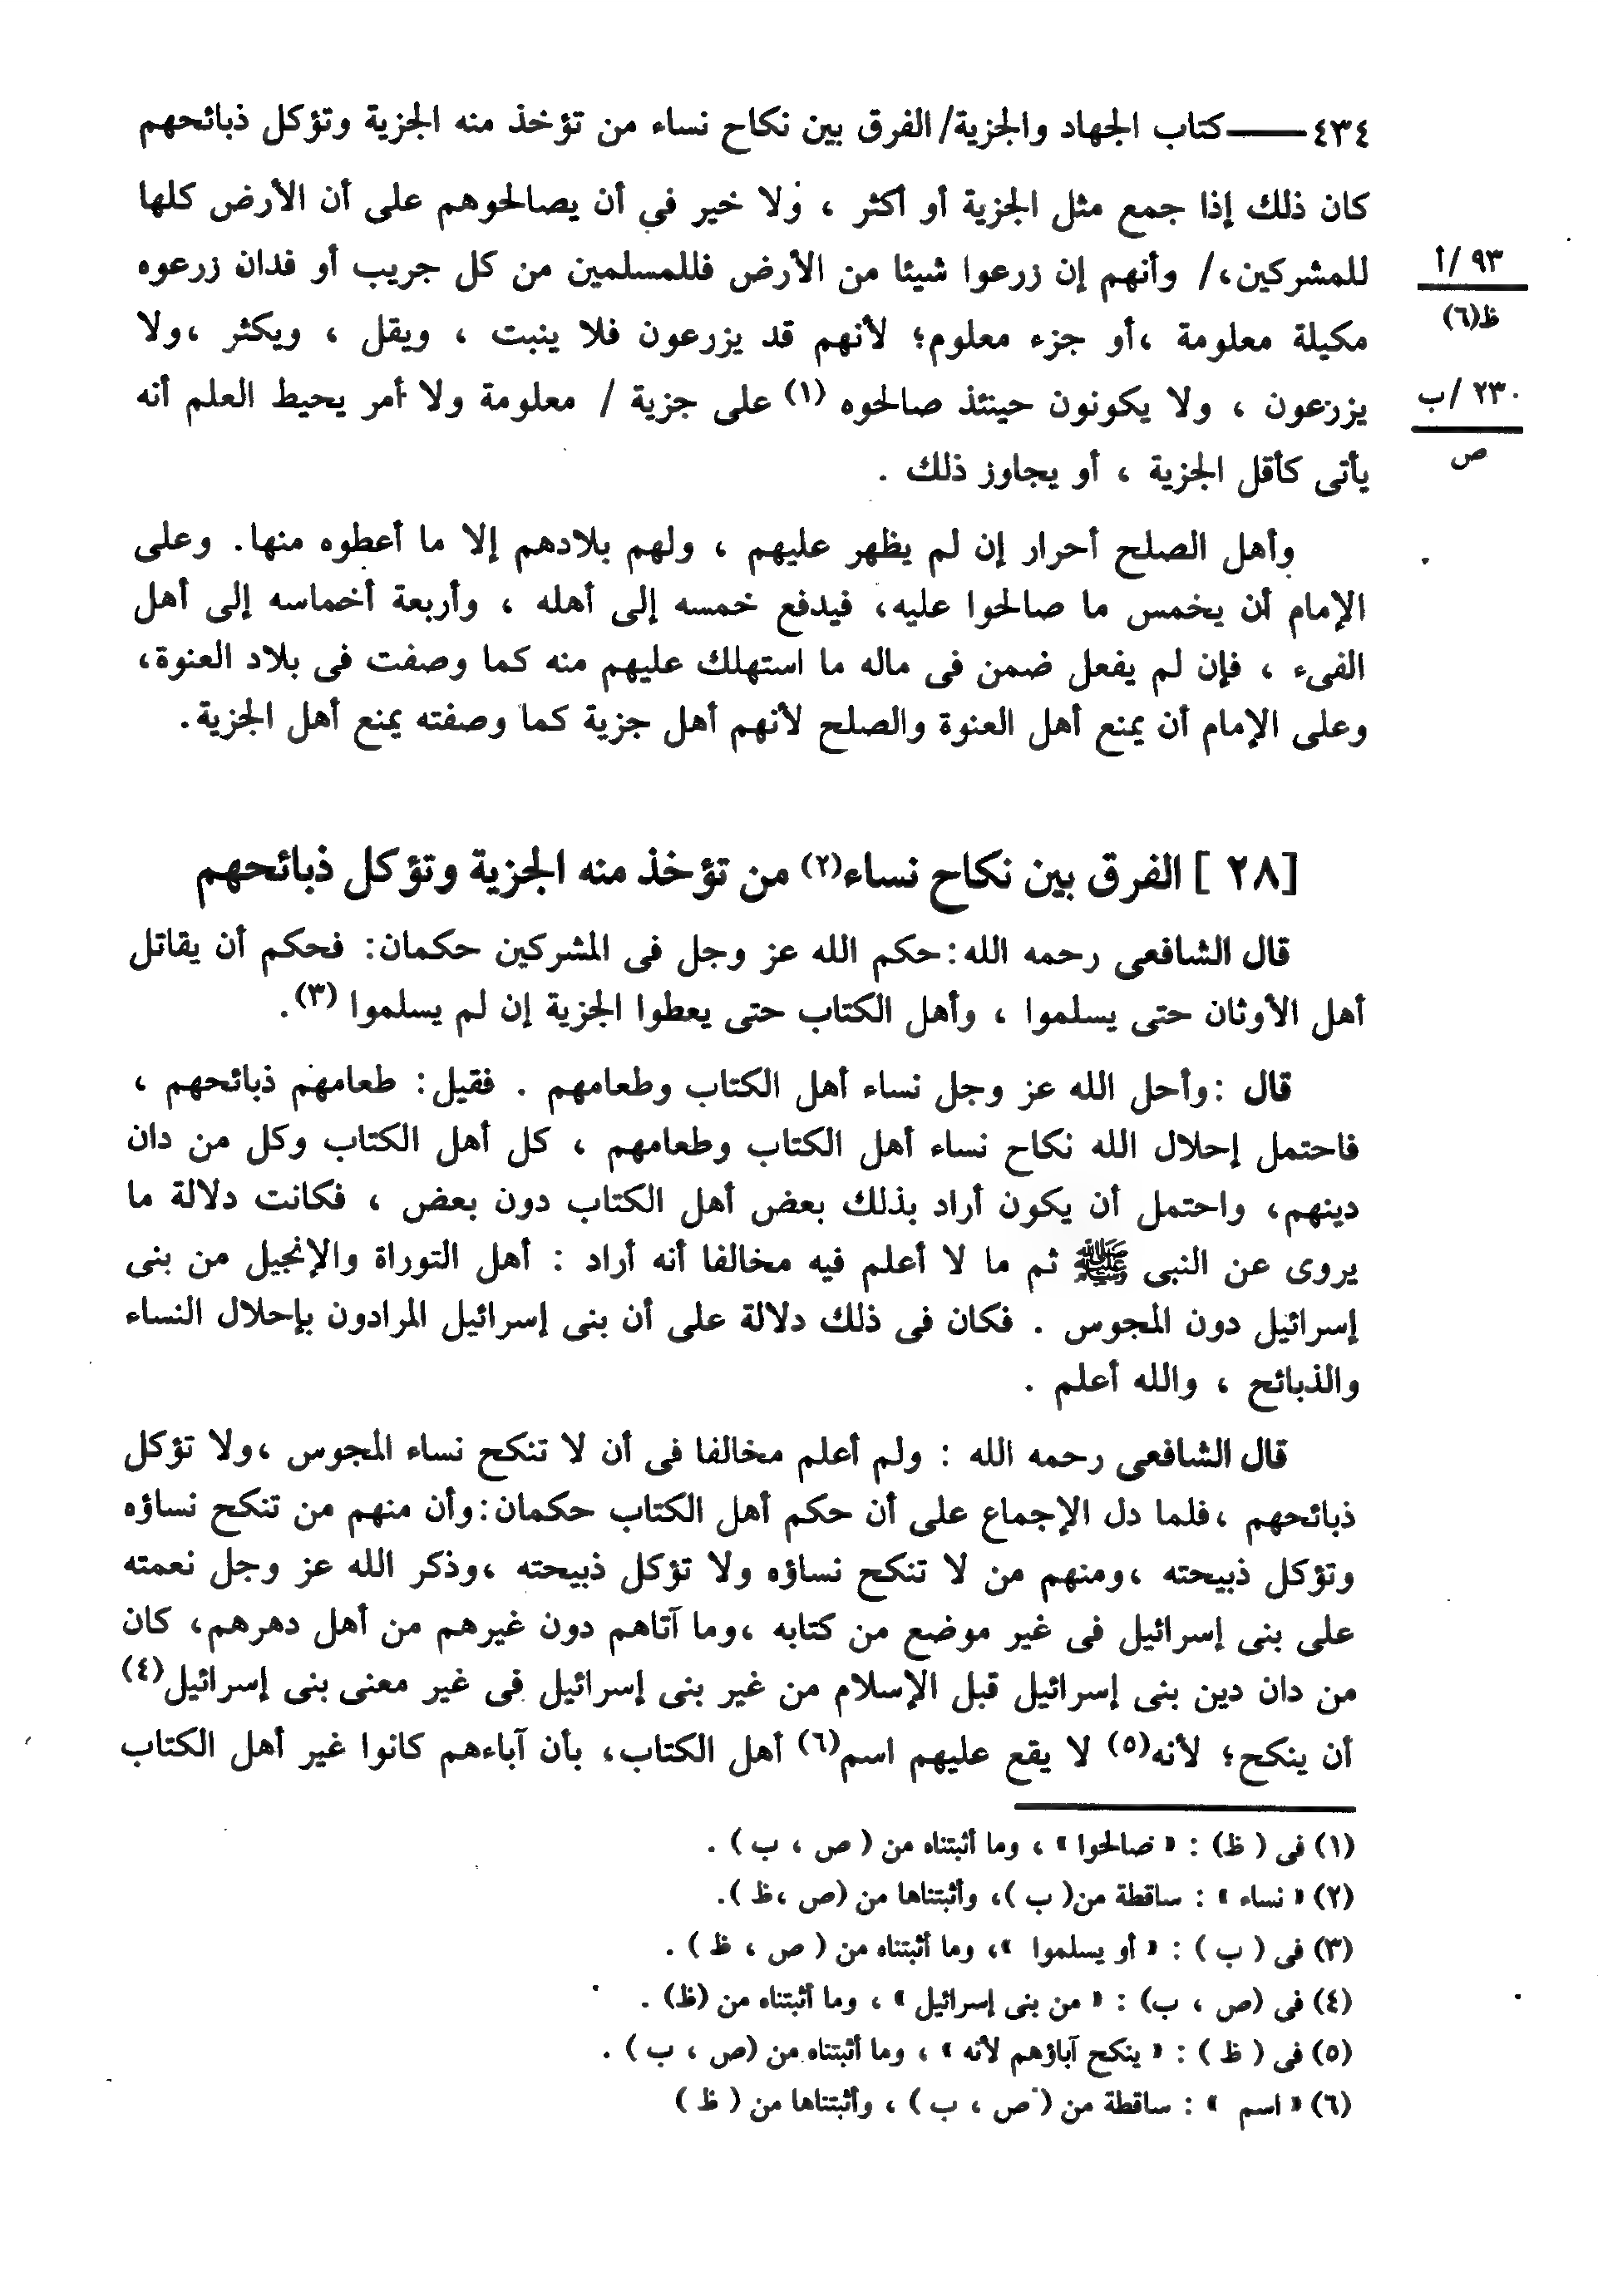 ٤٣٤ ــــ كتاب الجهاد والجزية/ الفرق بين نكاح نساء من تؤخذ منه الجزية وتؤكل ذبائحهم
كان ذلك إذا جمع مثل الجزية أو أكثر ، ولا خير فى أن يصالحوهم على أن الأرض كلها
للمشركين،/ وأنهم إن زرعوا شيئا من الأرض فللمسلمين من كل جريب أو فدان زرعوه
٩٣/أ
ظ(٦)
مكيلة معلومة ،أو جزء معلوم؛ لأنهم قد يزرعون فلا ينبت ، ويقل ، ويكثر ،ولا
يزرعون ، ولا يكونون حينئذ صالحوه (١) على جزية / معلومة ولا أمر يحيط العلم أنه
٢٣٠/ب
ص
يأتى كأقل الجزية ، أو يجاوز ذلك .
وأهل الصلح أحرار إن لم يظهر عليهم ، ولهم بلادهم إلا ما أعطوه منها. وعلى
الإمام أن يخمس ما صالحوا عليه، فيدفع خمسه إلى أهله ، وأربعة أخماسه إلى أهل
الفىء ، فإن لم يفعل ضمن فى ماله ما استهلك عليهم منه كما وصفت فى بلاد العنوة،
وعلى الإمام أن يمنع أهل العنوة والصلح لأنهم أهل جزية كما وصفته يمنع أهل الجزية.
[٢٨ ] الفرق بين نكاح نساء(٢) من تؤخذ منه الجزية وتؤكل ذبائحهم
قال الشافعى رحمه الله:حكم الله عز وجل فى المشركين حكمان: فحكم أن يقاتل
أهل الأوثان حتى يسلموا ، وأهل الكتاب حتى يعطوا الجزية إن لم يسلموا (٣).
قال :وأحل الله عز وجل نساء أهل الكتاب وطعامهم . فقيل: طعامهم ذبائحهم ،
فاحتمل إحلال الله نكاح نساء أهل الكتاب وطعامهم ، كل أهل الكتاب وكل من دان
دينهم، واحتمل أن يكون أراد بذلك بعض أهل الكتاب دون بعض ، فكانت دلالة ما
يروى عن النبى ﷺ ثم ما لا أعلم فيه مخالفا أنه أراد : أهل التوراة والإنجيل من بنى
إسرائيل دون المجوس . فكان فى ذلك دلالة على أن بنى إسرائيل المرادون بإحلال النساء
والذبائح ، والله أعلم .
قال الشافعى رحمه الله : ولم أعلم مخالفا فى أن لا تنكح نساء المجوس ،ولا تؤكل
ذبائحهم ،فلما دل الإجماع على أن حكم أهل الكتاب حكمان:وأن منهم من تنكح نساؤه
وتؤكل ذبيحته ،ومنهم من لا تنكح نساؤه ولا تؤكل ذبيحته ،وذكر الله عز وجل نعمته
على بنى إسرائيل فى غير موضع من كتابه ،وما آتاهم دون غيرهم من أهل دهرهم، كان
من دان دين بنى إسرائيل قبل الإسلام من غير بنى إسرائيل فى غير معنى بنى إسرائيل(٤)
أن ينكح؛ لأنه(٥) لا يقع عليهم اسم(٦) أهل الكتاب، بأن آباءهم كانوا غير أهل الكتاب
(١) فى ( ظ) : « صالحوا » ، وما أثبتناه من ( ص ، ب ) .
(٢) « نساء » : ساقطة من( ب )، وأثبتناها من (ص ،ظ ).
(٣) فى ( ب ) : « أو يسلموا »، وما أثبتناه من ( ص ، ظ ) .
(٤) فى (ص ، ب) : « من بنى إسرائيل » ، وما أثبتناه من (ظ) .
(٥) فى ( ظ ) : « ينكح آباؤهم لأنه » ، وما أثبتناه من (ص ، ب ) .
(٦) « اسم » : ساقطة من ( ص ، ب ) ، وأثبتناها من ( ظ )